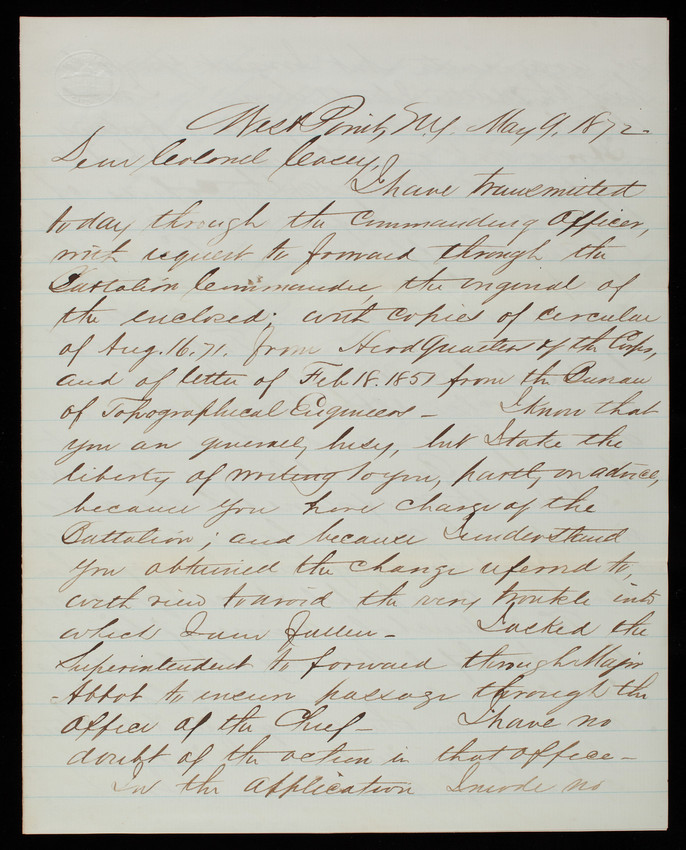 West Point, N.Y. May 9, 1872-
Dear Colonel Casey,
I have transmitted
today through the Commanding Officer,
with request to forward through the
Battalion Commander, the original of
the enclosed; with copies of circular
of Aug. 16. 71. from Head Quarters of the Corps,
and of letter of Feb. 18. 1851 from the Bureau
of Topographical Engineers - I know that
you are generally busy, but I take the
liberty of writing to you, partly, on advice,
because you have charge of the
Battalion; and because I understand
you obtained the change referred to,
with view to avoid the very trouble into
which I am fallen - I asked the
Superintendent to forward through Major
Abbot to insure passage through the
Office of the Chief - I have no
doubt of the action in that office -
In the application I made no